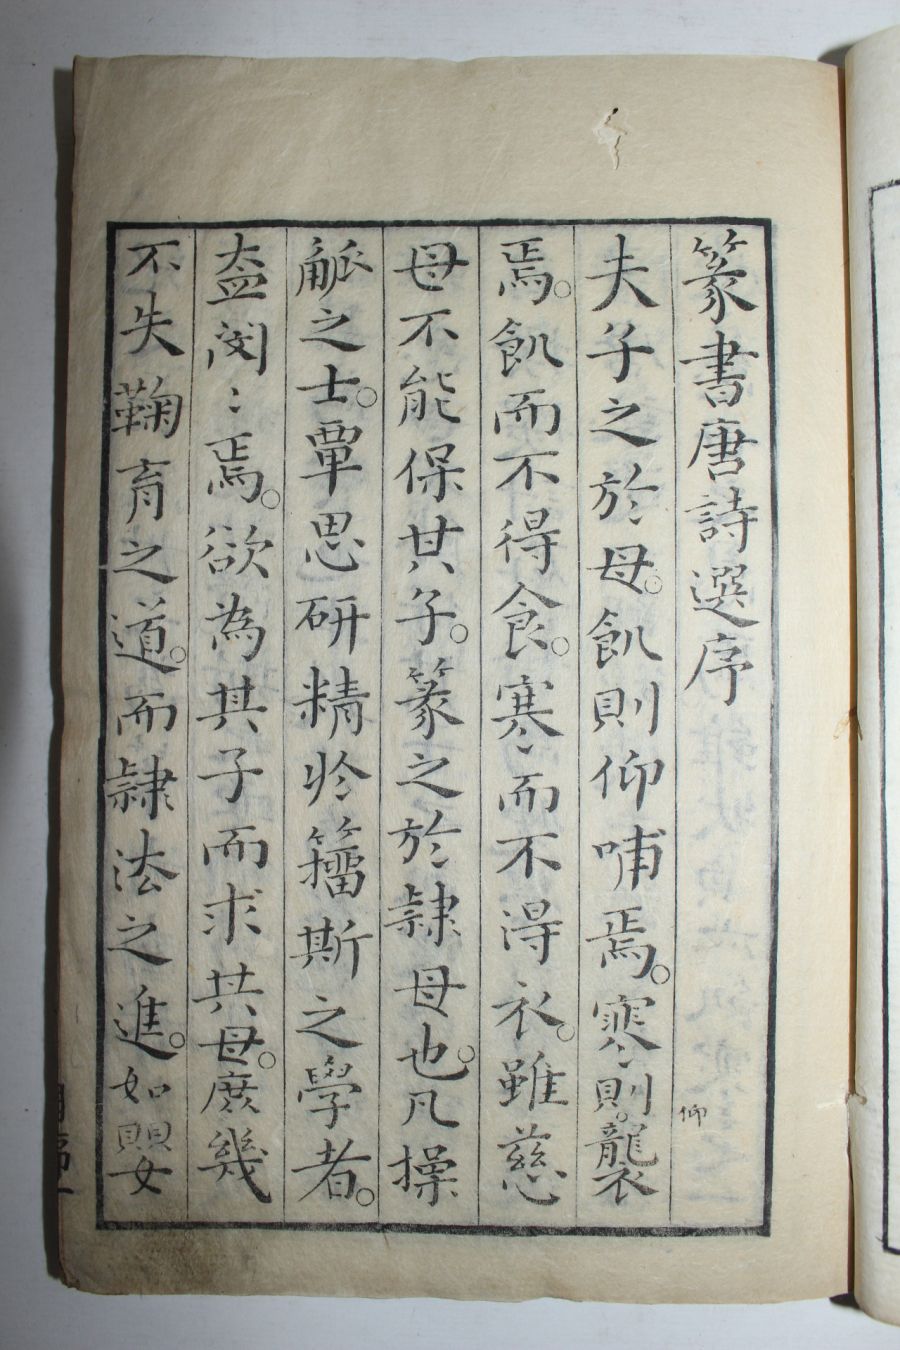 篆書唐詩選序
仰
夫子之於母。飢則仰哺焉。寒則。襲衣
焉。飢而不得食。寒而不得衣。雖慈
母不能保其子。篆之於隷母也。凡操
觚之士。覃思研精於籀斯之學者。
盍閔〻焉。欲為其子而求其母。庶幾
不失鞠育之道。而隷法之進。如嬰